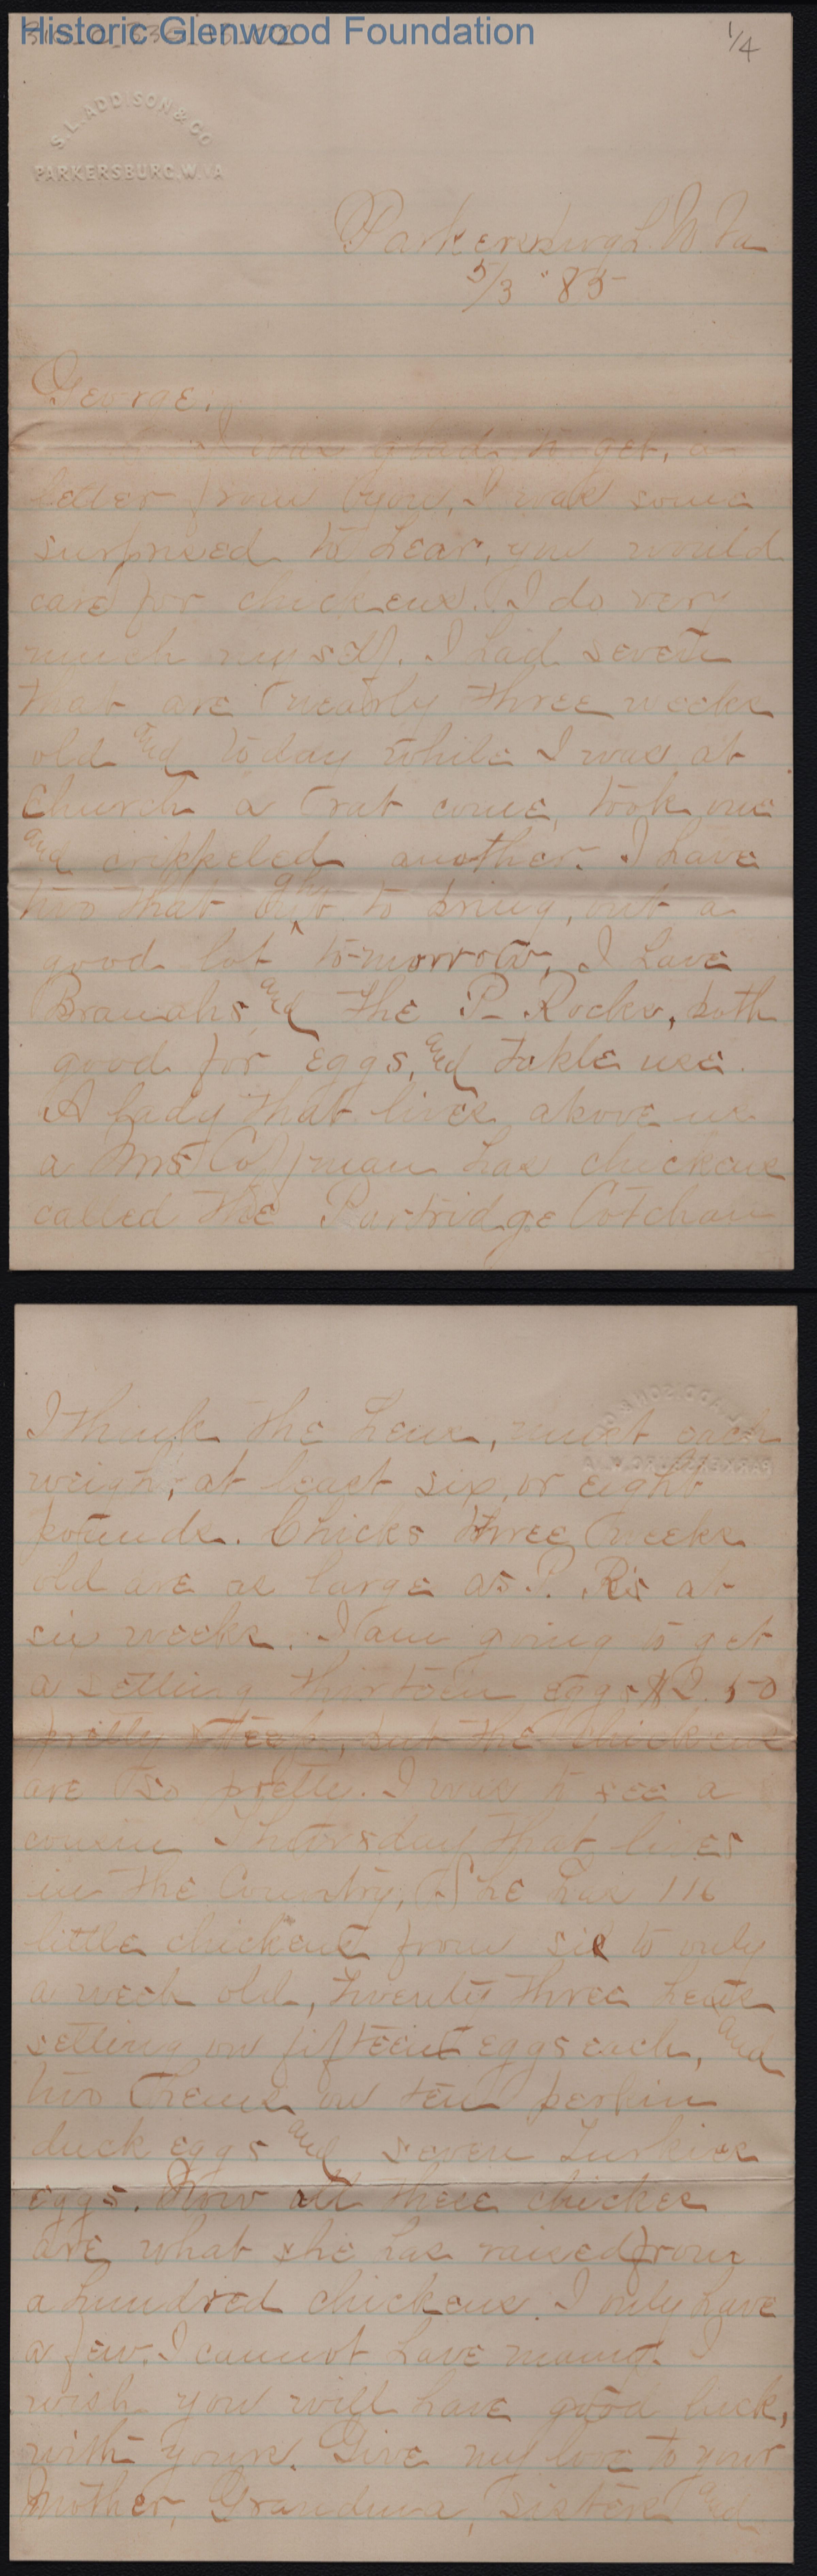 Historic Glenwood Foundation
1/4
S. L. ADDISON & CO
PARKERSBURG, W. VA
Parkersburgh W. Va
5/3 " 85
George.
I was glad to get, a
letter from you, I was some
surprised to hear, you would
care for chickens. I do very
much myself. I had seven
that are nearly three weeks
old and today while I was at
Church a rat come, took one
and crippeled another. I have
two that to bring, out a
good lot to-morrow, I have
Bramahs and the P- Rocks, both
good for eggs, and table use.
A Lady that lives above us
a Mrs Coffman has chickens
called the Partridge Cotchan
I think the hens, must each
weigh, at least six, or eight
pounds. Chicks three weeks
old are as large as P. R's at
six weeks. I am going to get
a setting thirteen eggs $2.50
pretty steep, but the chickens
are so prette. I was to see a
cousin Thursday that lives
in the Country, She has 116
little chickens from six to only
a week old, twenty three hens
setting on fifteen eggs each, and
two hens on ten
duck eggs and seven turkies
eggs. Now all these chickes
are what she has raised from
a hundred chickens. I only have
a few. I cannot have many. I
wish you will have good luck,
with yours. Give my love to your
Mother, Grandma, Sisters and